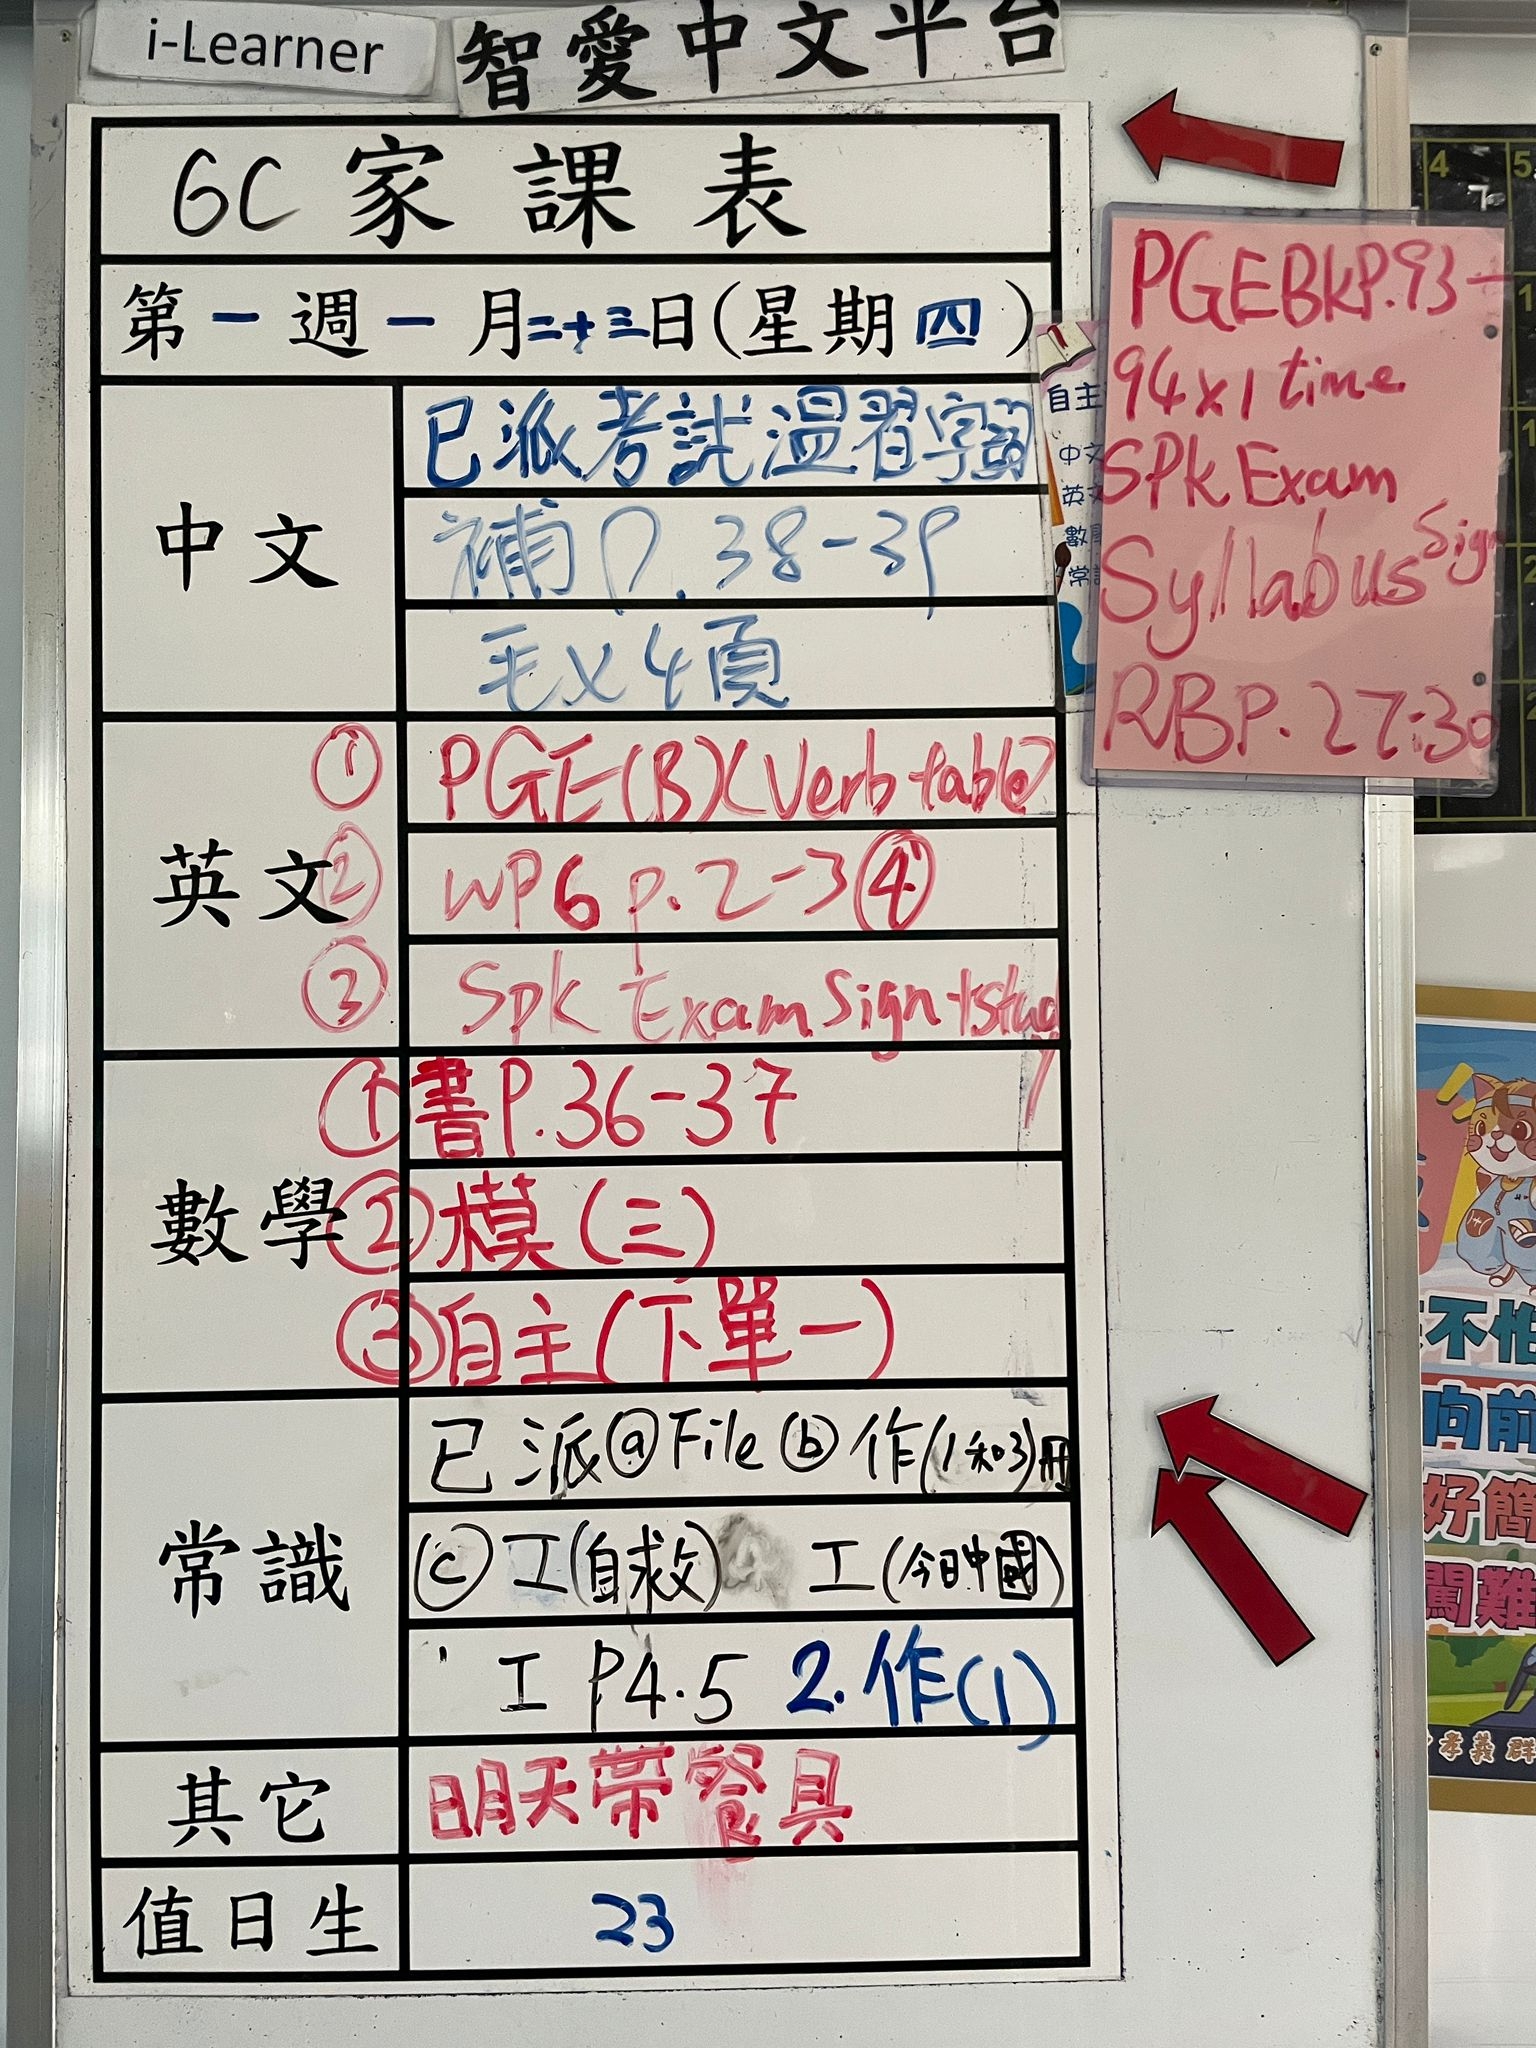 i-Learner 智愛中文平台
6C 家課表
第一週一月二十三日(星期四)
中文
已派考試溫習字詞
補 P.38-39
毛x4頁
英文
① PGE(B)(Verb table)
② WP6 p.2-3 ④
③ Spk Exam Sign + study
數學
① 書P.36-37
② 模(三)
③ 自主(下單一)
常識
已派ⓐFile ⓑ作(1和3)冊
ⓒ工(自救) 工(今日中國)
工 P4.5 2.作(1)
其它
明天帶餐具
值日生
23
PGEBkP.93-
94x1 time
SPk Exam
Syllabus Sign
RBP.27-30
自主
中文
英文
4 5
7
不怕
向前
好簡
闖難
孝義群